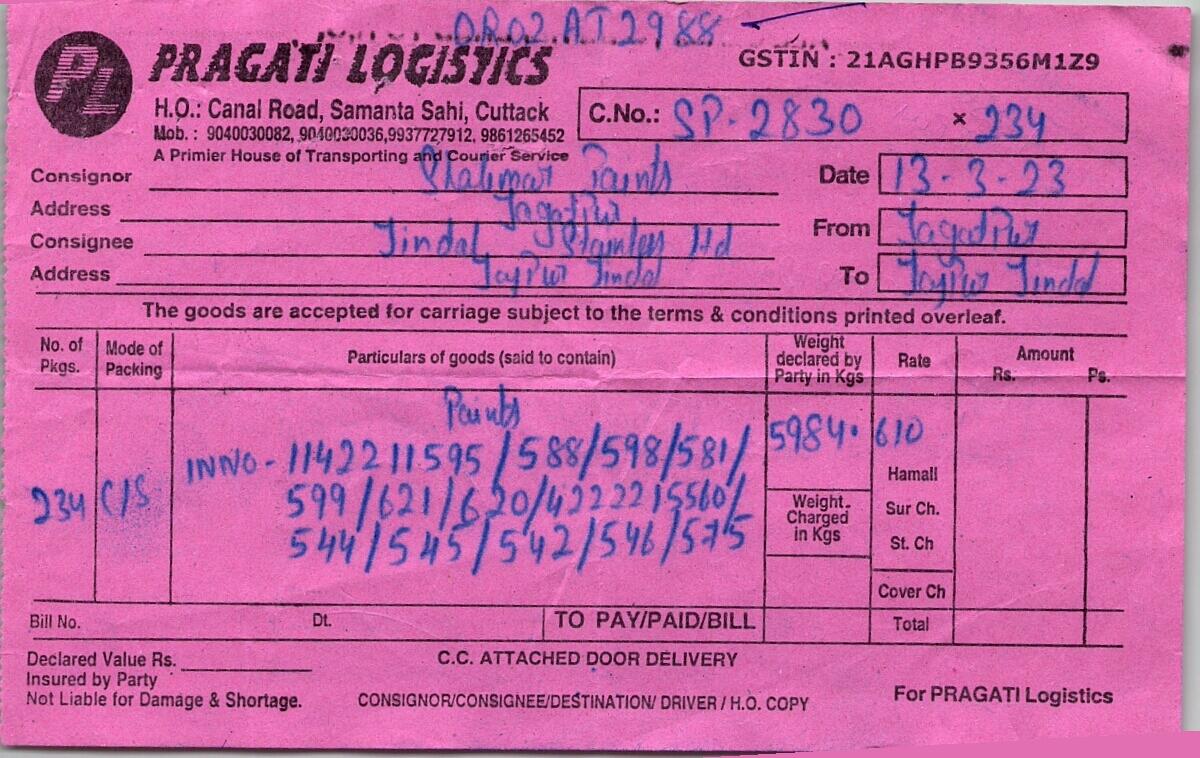 OR02 AT 2988
PL
PRAGATI LOGISTICS
GSTIN : 21AGHPB9356M1Z9
H.O.: Canal Road, Samanta Sahi, Cuttack
Mob. : 9040030082, 9040030036,9937727912, 9861265452
A Primier House of Transporting and Courier Service
C.No.: SP-2830 × 234
Consignor Shalimar Paints
Date 13-3-23
Address Jagatpur
From Jagatpur
Consignee Jindal Stainless ltd
Address Jajpur Jindal
To Jajpur Jindal
The goods are accepted for carriage subject to the terms & conditions printed overleaf.
No. of Pkgs. Mode of Packing Particulars of goods (said to contain) Weight declared by Party in Kgs Rate Amount Rs. Ps.
Paints
234 C/S INNO - 1142211595/588/598/581/ 5984. 610
599/621/620/4222215560/
544/545/542/546/575
Hamall
Weight. Charged in Kgs
Sur Ch.
St. Ch
Cover Ch
Bill No. Dt. TO PAY/PAID/BILL Total
Declared Value Rs.
C.C. ATTACHED DOOR DELIVERY
Insured by Party
Not Liable for Damage & Shortage.
CONSIGNOR/CONSIGNEE/DESTINATION/ DRIVER / H.O. COPY
For PRAGATI Logistics